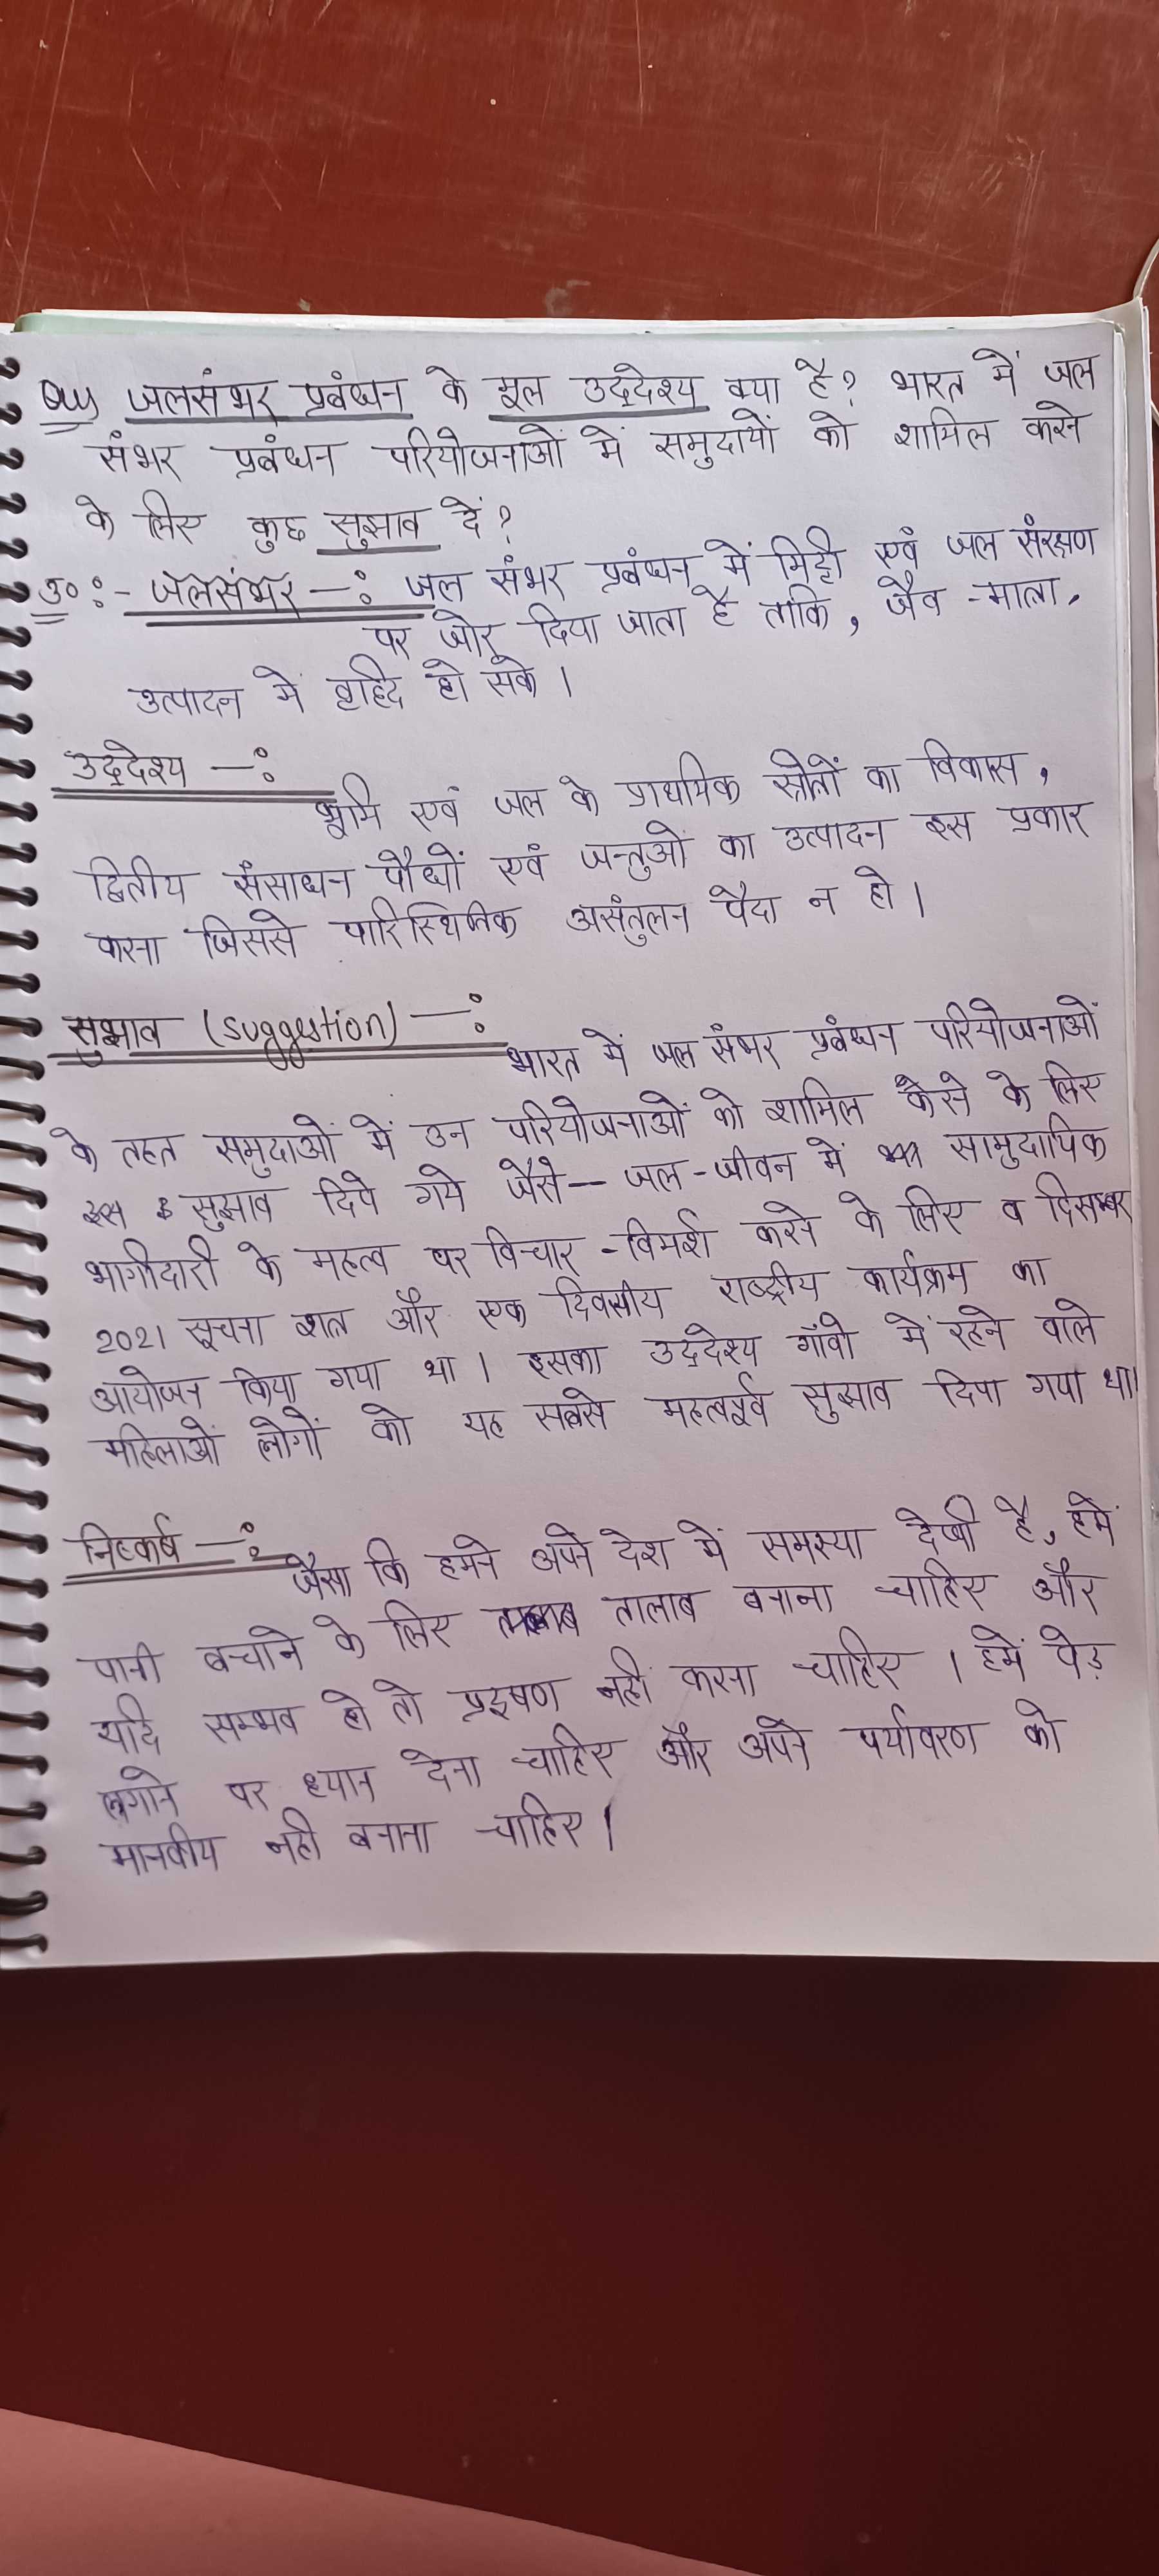 Qus जलसंभर प्रबंधन के मूल उद्देश्य क्या है? भारत में जल
संभर प्रबंधन परियोजनाओं में समुदायों को शामिल करने
के लिए कुछ सुझाव दें?
उ० :- जलसंभर -: जल संभर प्रबंधन में मिट्टी एवं जल संरक्षण
पर जोर दिया जाता है ताकि, जैव -मात्रा,
उत्पादन में वृद्दि हो सके।
उद्देश्य -:
भूमि एवं जल के प्राथमिक स्रोतों का विकास,
द्वितीय संसाधन पौधों एवं जन्तुओं का उत्पादन इस प्रकार
करना जिससे पारिस्थितिक असंतुलन पैदा न हो।
सुझाव (suggestion) -:
भारत में जल संभर प्रबंधन परियोजनाओं
के तहत समुदाओं में उन परियोजनाओं को शामिल कैसे के लिए
इस सुझाव दिये गये जैसे- जल-जीवन में सामुदायिक
भागीदारी के महत्व पर विचार -विमर्श करने के लिए व दिसम्बर
2021 सूचना और एक दिवसीय राष्ट्रीय कार्यक्रम का
आयोजन किया गया था। इसका उद्देश्य गाँवो में रहने वाले
महिलाओं लोगों को यह सबसे महत्वपूर्व सुझाव दिया गया था।
निष्कर्ष -:
जैसा कि हमने अपने देश में समस्या देखी है, हमें
पानी बचाने के लिए तालाब बनाना चाहिए और
यदि सम्भव हो तो प्रदूषण नही करना चाहिए। हमें पेड़
लगाने पर ध्यान देना चाहिए और अपने पर्यावरण को
मानवीय नही बनाना चाहिए।